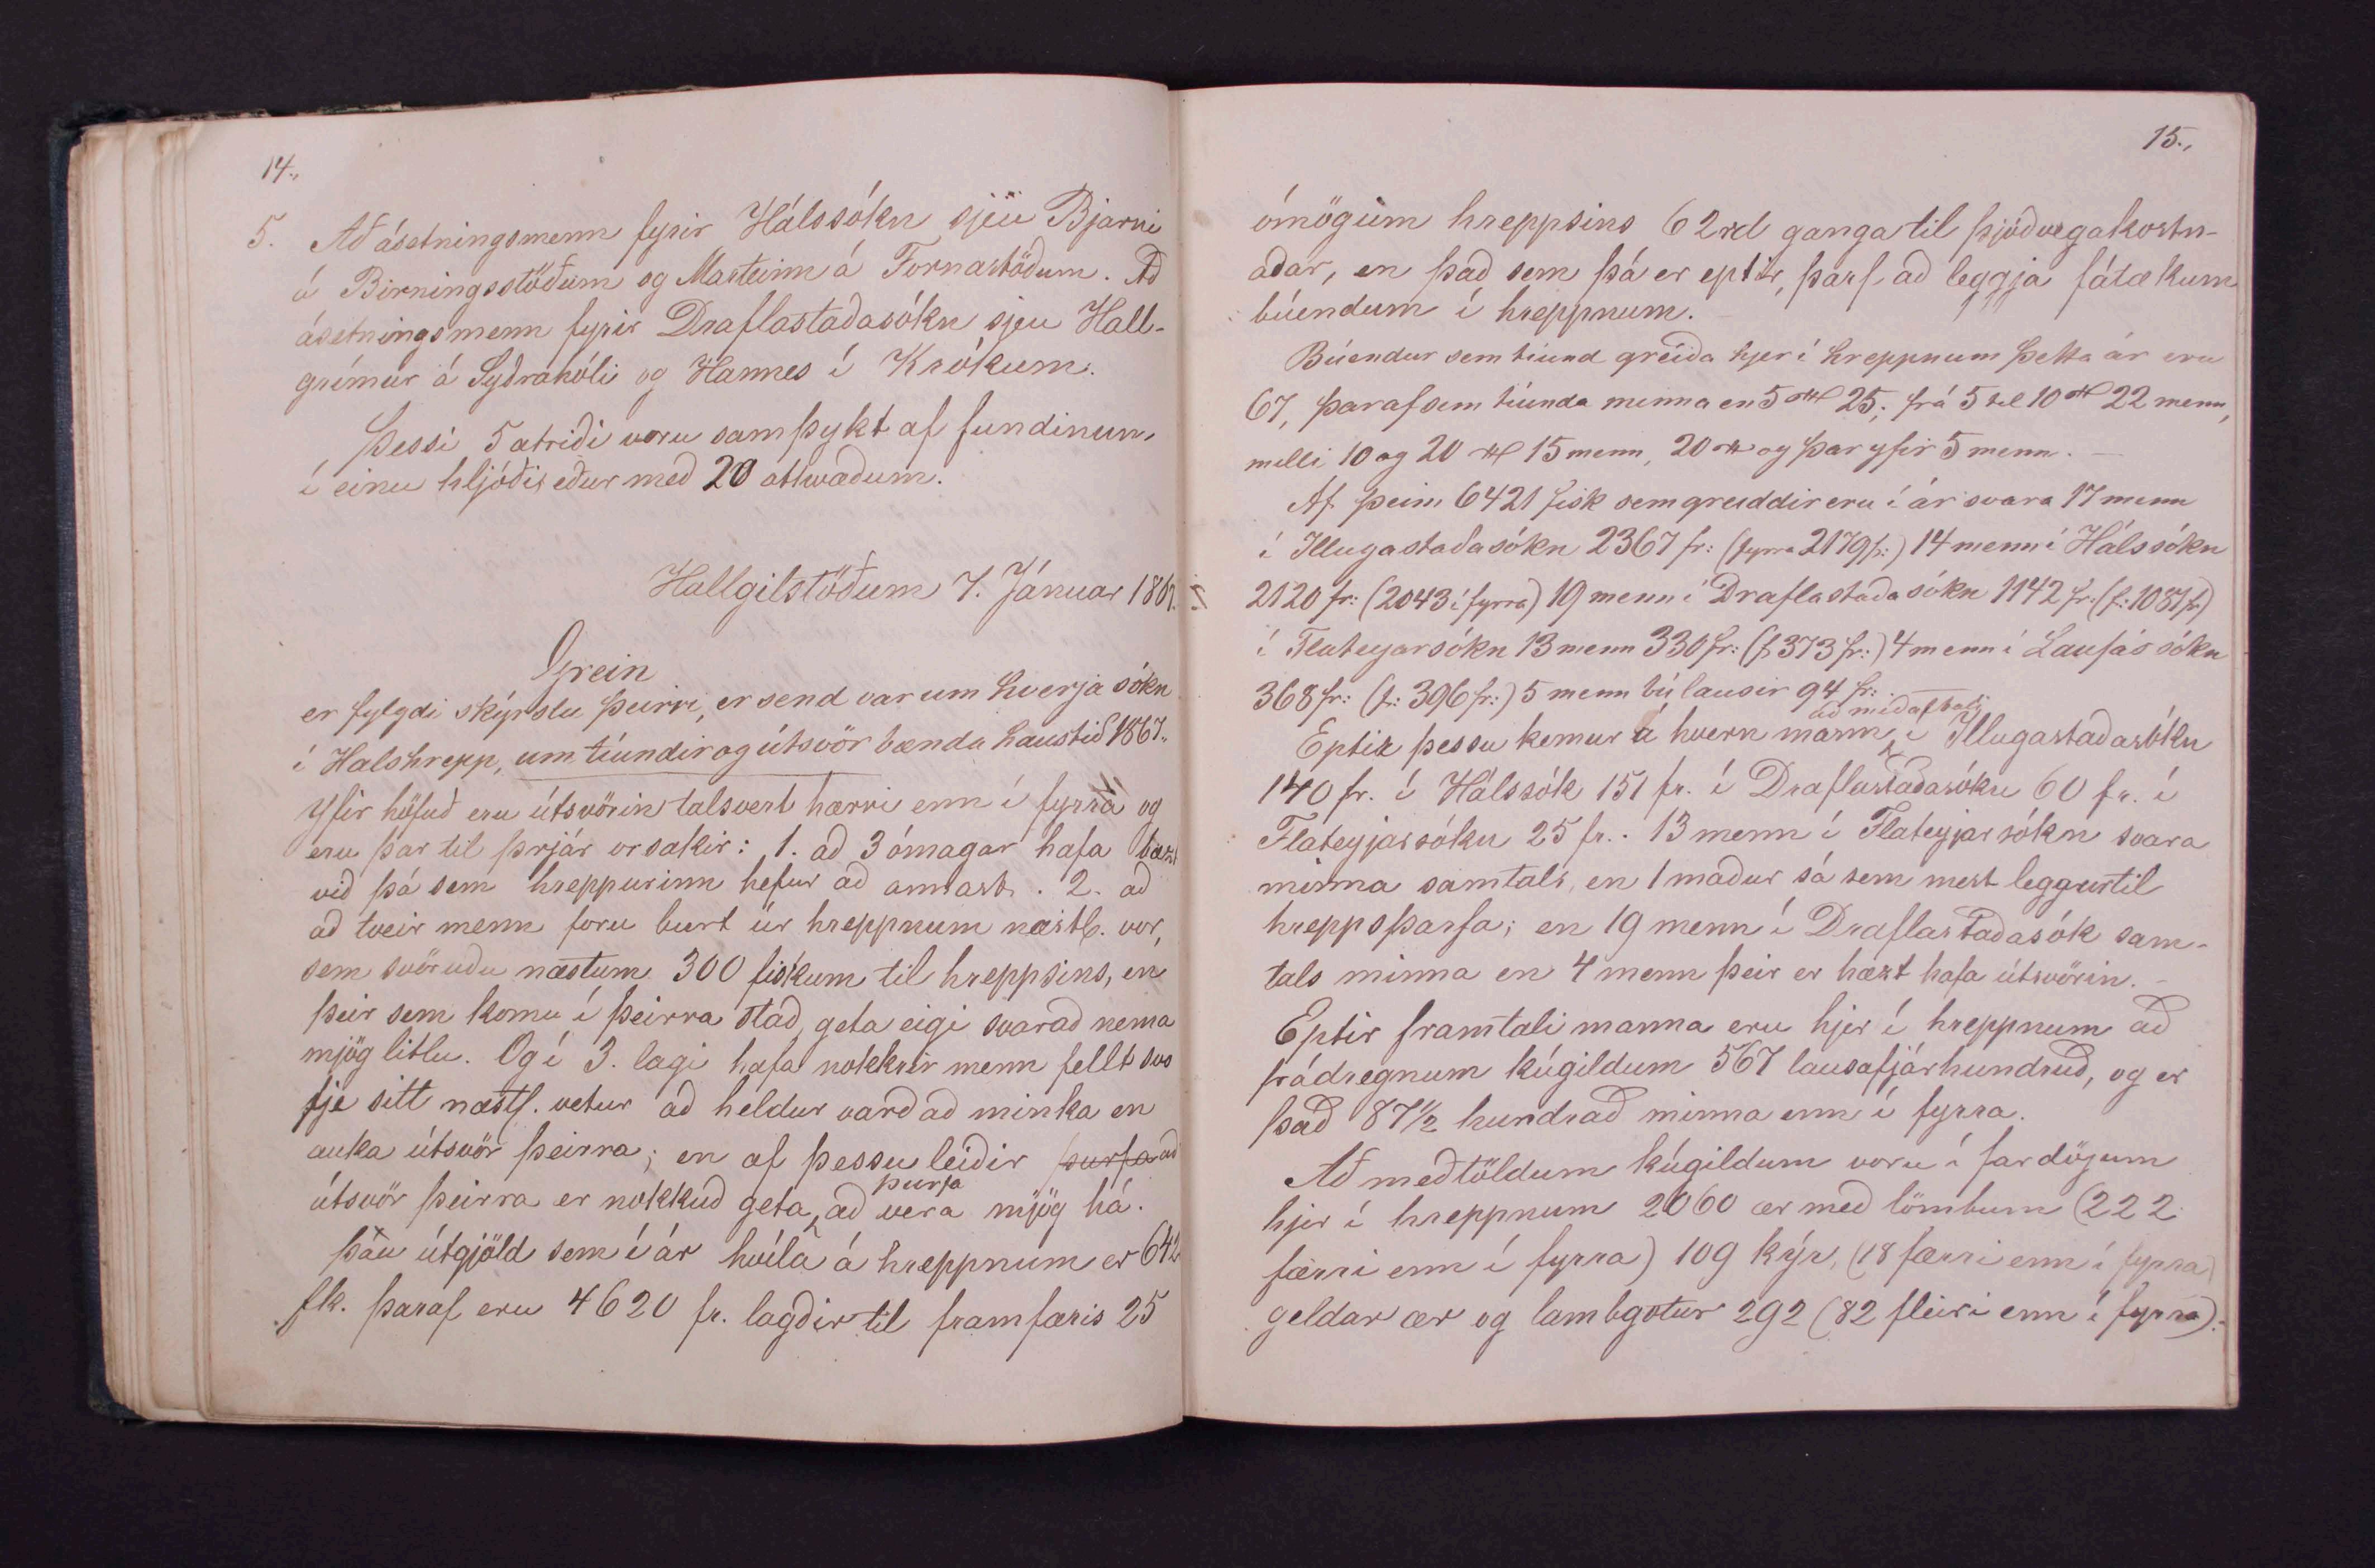 14.,
5. Að ásetningsmenn fyrir Hálssókn sjeu Bjarni
á Birningsstöðum og Marteinn á Fornastöðum. Að
ásetningsmenn fyrir Draflastaðasókn sjeu Hall-
grímur á Syðrahóli og Hannes í Krókum.
Þessi 5 atriði voru samþykt af fundinum,
í einu hljóði, eður með 20 atkvæðum.
Hallgilstöðum 7. Jánuar
Grein
er fylgdi skýrslu þeirri, er send var um hverja sókn
í Halshrepp, um tíundir og útsvör bænda haustið 1867.,
Yfir höfuð eru útsvörin talsvert hærri enn í fyrra og
eru þar til þrjár orsakir: 1. að 3 ómagar hafa bæzt
við þá sem hreppurinn hefur að annast. 2. að
að tveir menn foru burt úr hreppnum næstl. vor,
sem svöruðu næstum 300 fiskum til hreppsins, en
þeir sem komu í þeirra stað, geta eigi svarað nema
mjög litlu. Og í 3. lagi hafa nokkrir menn fellt svo
fje sitt næstl. vetur að heldur varð að minka en
auka útsvör þeirra; en af þessu leiðir þurfa að
útsvör þeirra er nokkuð geta, þurfa að vera mjög há.
Þau útgjöld sem í ár hvíla á hreppnum er 642
fk. þaraf eru 4620 fr. lagðir til framfæris 25
15.,
ómögum hreppsins 62rd ganga til þjóðvegakostn-
aðar, en það sem þá er eptir, þarf að leggja fátækum
búendum í hreppnum.
Búendur sem tíund greiða hjer í hreppnum þetta ár eru
67, þaraf sem tíunda minna en 5 25; frá 5 til 10 22 menn,
milli 10 og 20 15 menn, 20 og þar yfir 5 menn.
Af þeim 6421 fisk sem greiddir eru í ár svara 17 menn
í Illugastaðasókn 2367 fr: (fyrra 2179 fr:) 14 menn í Hálssókn
2120 fr: (2043 í fyrra) 19 menn í Draflastaðasókn 1142 fr: (f: 1051 fr)
í Flateyarsókn 13 menn 330 fr: (f 373 fr:) 4 menn í Laufássókn
368 fr: (f: 396 fr:) 5 menn búlausir 94 fr:.
Eptir þessu kemur á hvern mann að meðaltali í Illugastaðasókn
140 fr. í Hálssók 151 fr. í Draflastaðasókn 60 fr. í
Flateyjarsókn 25 fr.. 13 menn í Flateyjarsókn svara
minna samtals, en 1 maður sá sem mest leggur til
hreppsþarfa; en 19 menn í Draflastaðasók sam-
tals minna en 4 menn þeir er hæzt hafa útsvörin.
Eptir framtali manna eru hjer í hreppnum að
frádregnum kúgildum 567 lausafjárhundruð, og er
það 87 1/2 hundrað minna enn í fyrra.
Að meðtöldum kúgildum voru í fardögum
hjer í hreppnum 2060 ær með lömbum (222
færri enn í fyrra) 109 kýr, (18 færri enn í fyrra)
geldar ær og lambgotur 292 (82 fleiri enn í fyrra).